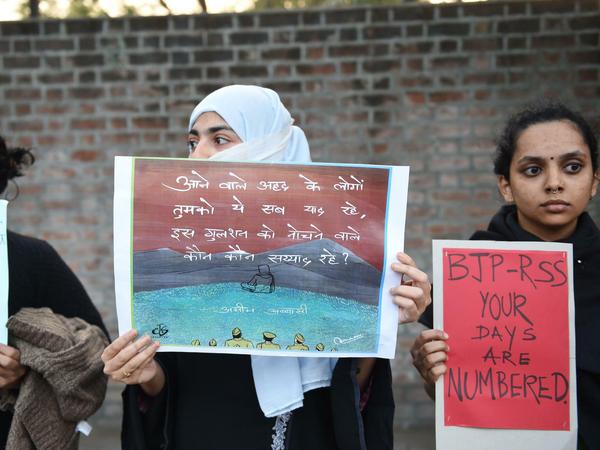 आने वाले अहद के लोगों
तुमको ये सब याद रहे,
इस गुलशन को नोचने वाले
कौन कौन सय्याद रहे?
- असीम अब्बासी
BJP-RSS
YOUR
DAYS
ARE
NUMBERED.